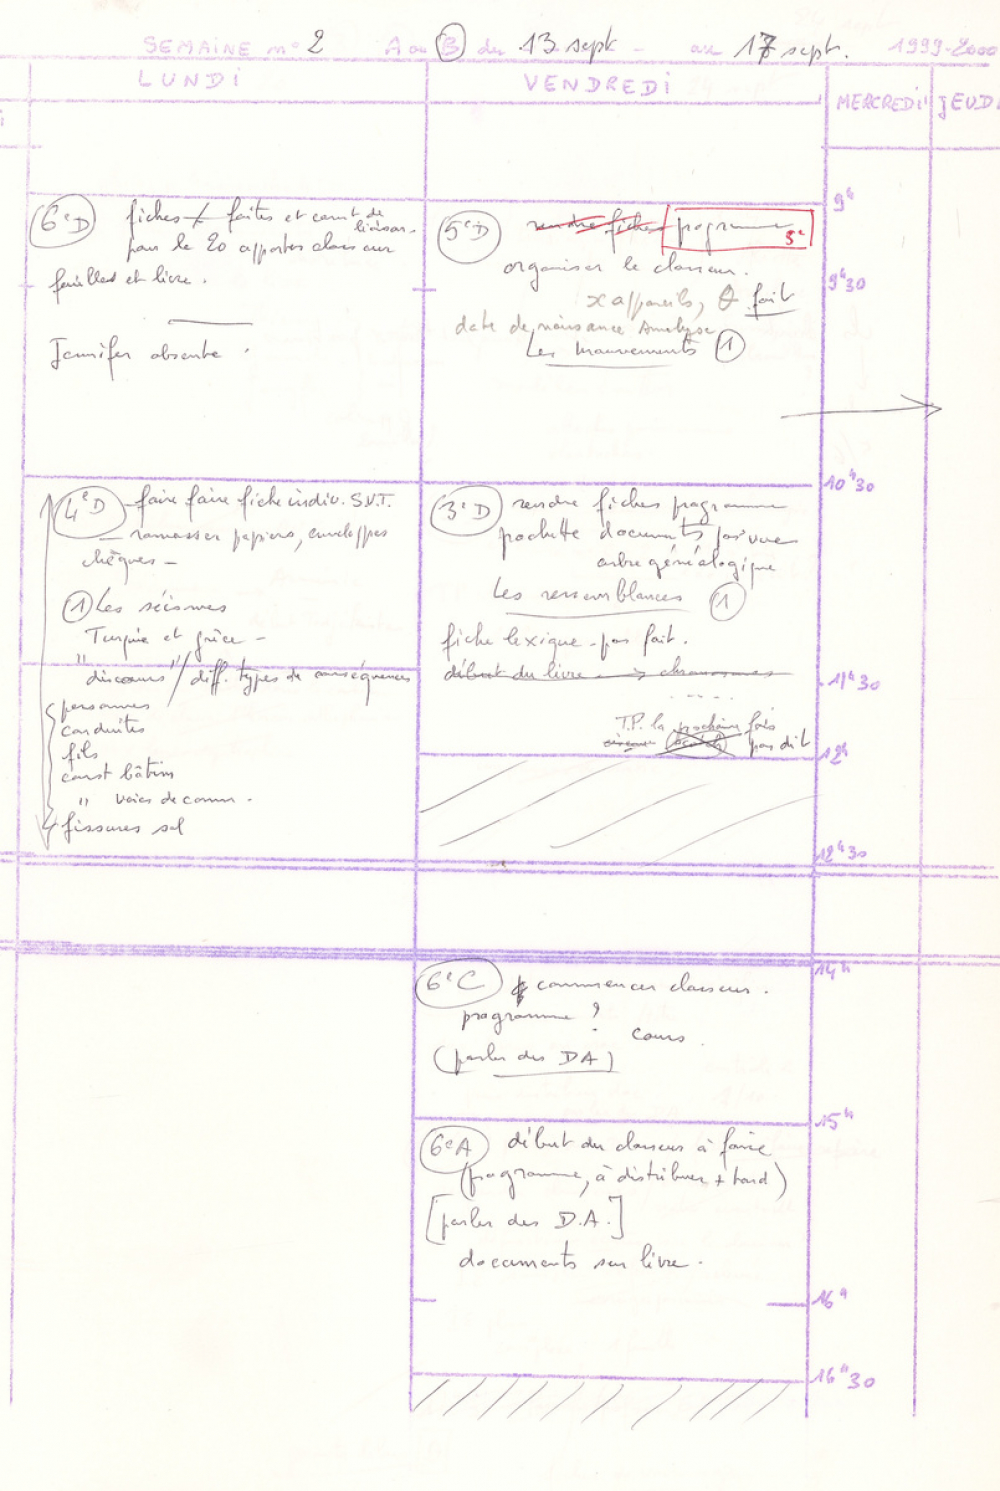 SEMAINE n° 2 A ou B du 13 sept - au 17 sept. 1999-2000
LUNDI
VENDREDI
MERCREDI
JEUDI
6eD fiches faites et carnet de liaison.
pour le 20 apporter classeur
feuilles et livre.
Jennifer absente.
4eD - faire faire fiche indiv. S.V.T.
- ramasser papiers, enveloppes
chèques -
1 Les séismes
Turquie et grèce -
" discours " / diff. types de conséquences
personnes
conduites
fils
const bâtim
" voies de comm.
fissures sol
5eD rendre fiches programme
5e
organiser le classeur.
x appareils, fait
date de naissance Analyse
Les mouvements 1
3eD rendre fiches programme
pochette documents
arbre généalogique
Les ressemblances 1
fiche lexique - pas fait.
début du livre → chromosomes
T.P. la prochaine fois
pas dit
6eC commencer classeur.
programme ?
cours.
(parler des DA)
6eA début du classeur à faire
(programme, à distribuer + tard)
[parler des D.A.]
documents sur livre.
9h
9h30
10h30
11h30
12h
12h30
14h
15h
16h
16h30